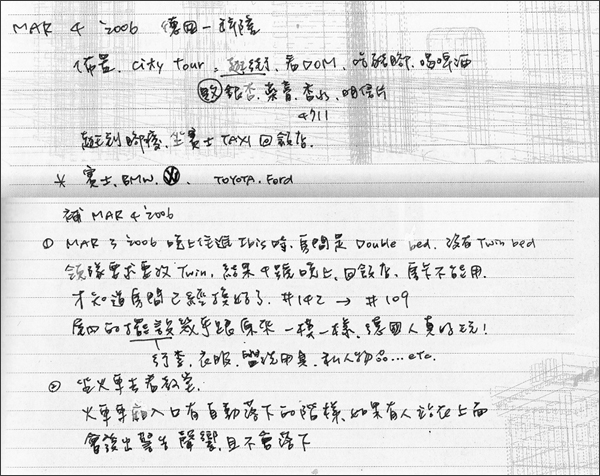 MAR 4 2006 德國—科隆
佈置. city tour, 逛街, 看DOM, 吃豬腳, 喝啤酒
敗 銀杏, 香水, 明信片
4711
逛到腳痠, 坐賓士 TAXI 回飯店.
* 賓士, BMW, VW, TOYOTA, Ford
補 MAR 4 2006
① MAR 3 2006 晚上住進 Ibis 時, 房間是 Double bed, 沒有 Twin bed
領隊要求要改 Twin, 結果 4號晚上, 回飯店, 房卡不能用.
才知道房間已經換好了. #142 → #109
房內的擺設幾乎跟原來一模一樣, 德國人真的!
行李, 衣服, 盥洗用具, 私人物品...etc.
② 坐火車去看教堂.
火車車廂入口有自動落下的階梯, 如果有人站在上面
會發出警告聲響, 且不會落下